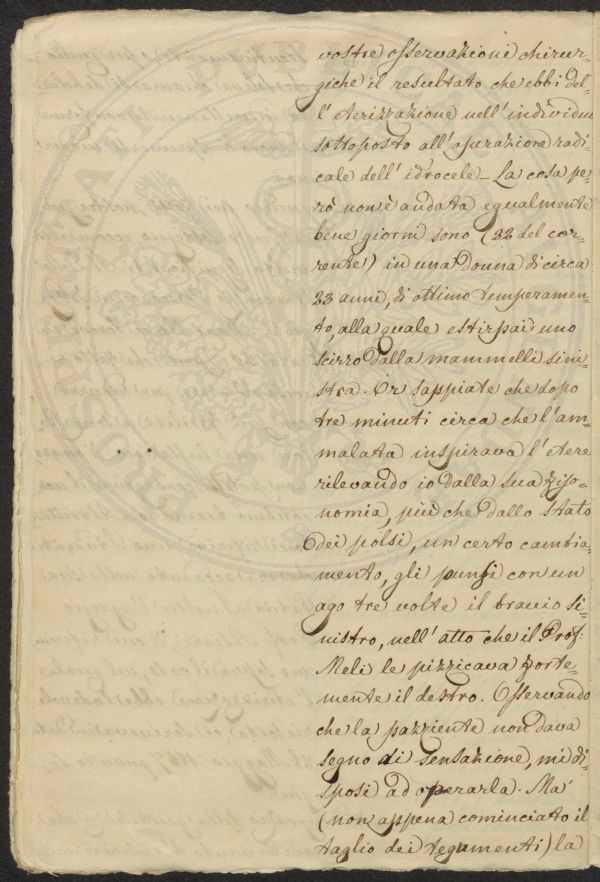 vostre osservazioni chirur=
giche il resultato che ebbi del=
l'eterizzazione nell'individuo
sottoposto all'operazione radi=
cale dell'idrocele_ La cosa pe=
rò non è andata egualmente
bene giorni sono (22 del cor=
rente) in una Donna di circa
23 anni, di ottimo temperamen=
to, alla quale estirpai uno
scirro dalla mammelli sini=
stra. Or sappiate che dopo
tre minuti circa che l'am=
malata inspirava l'etere
rilevando io dalla sua fiso=
nomia, più che dallo stato
dei polsi, un certo cambia=
mento, gli punsi con un
ago tre volte il braccio si=
nistro, nell'atto che il Prof:
Meli le pizzicava forte=
mente il destro. Osservando
che la pazziente non dava
segno di sensazione, mi di=
sposi ad operarla. Ma
(non appena cominciato il
taglio dei tegumenti) la